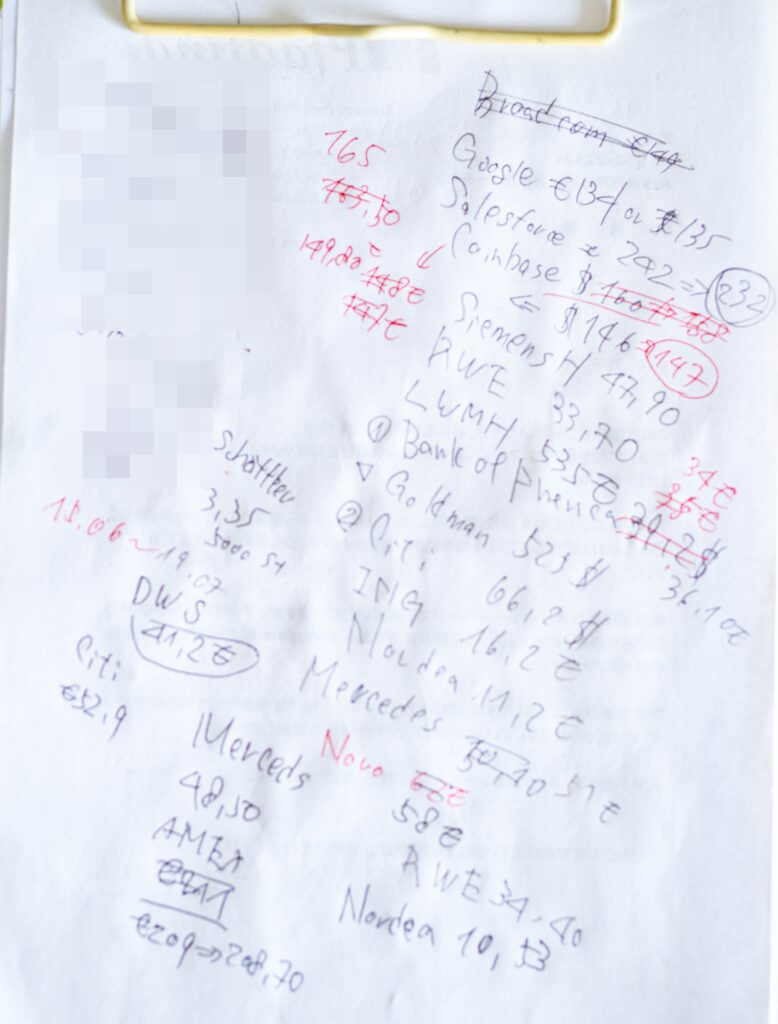 Broadcom €144
165
Google €134 or $135
163,50
Salesforce 242 => 232
149,80 148€
Coinbase $ 160 168
147€
<= $146 147
Siemens H 47,90
RWE 33,70
LWMH 535€
① Bank of 39,2$
34€
36,10€
Goldman 523 $
② Citi 66,2 $
ING 16,2 €
Nordea 11,2 €
Mercedes 50,10 51 €
3,35
5000 St
11.06~19.07
DWS
41,2€
Citi
€52,9
Merceds
48,50
Novo
58€
AMEX
€211
€209=>208,70
RWE 34,40
Nordea 10,53